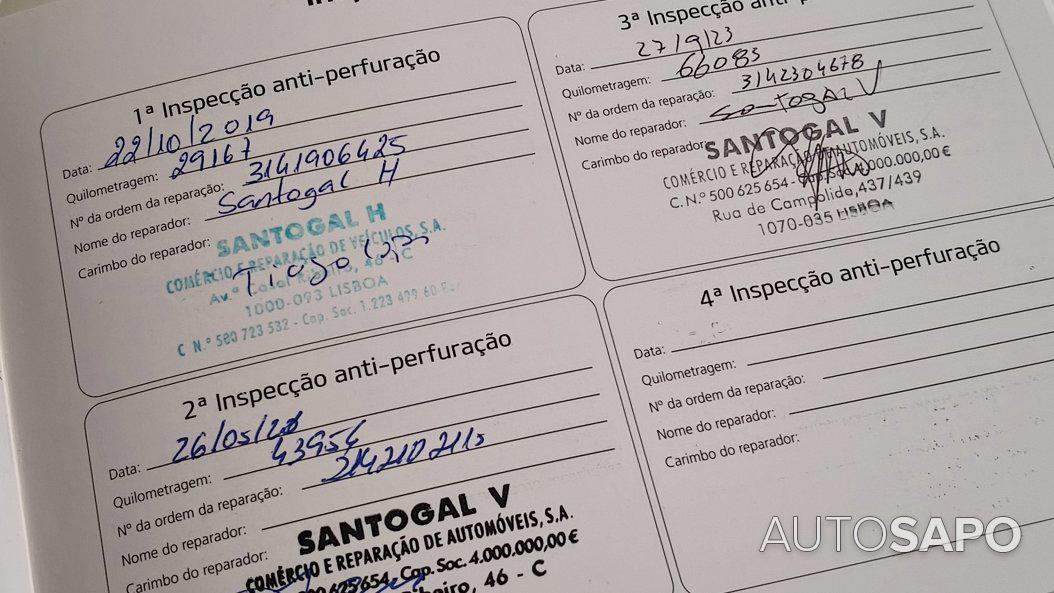 1ª Inspecção anti-perfuração
Data: 22/10/2019
Quilometragem: 29167
Nº da ordem da reparação: 3141906425
Nome do reparador: Santogal H
Carimbo do reparador:
SANTOGAL H
COMÉRCIO E REPARAÇÃO DE VEÍCULOS, S.A.
Av.ª Casal Ribeiro, 46 - C
1000-093 LISBOA
C N.º 580 723 532 - Cap. Soc. 1.223 479 60
2ª Inspecção anti-perfuração
Data: 26/05/
Quilometragem: 43954
Nº da ordem da reparação:
Nome do reparador:
Carimbo do reparador:
SANTOGAL V
COMÉRCIO E REPARAÇÃO DE AUTOMÓVEIS, S.A.
500 625 654 - Cap. Soc. 4.000.000,00 €
Ribeiro, 46 - C
3ª Inspecção anti-
Data: 27/9/23
Quilometragem: 66083
Nº da ordem da reparação: 3142304678
Nome do reparador: Santogal V
Carimbo do reparador:
SANTOGAL V
COMÉRCIO E REPARAÇÃO DE AUTOMÓVEIS, S.A.
C. N.º 500 625 654 - Cap. Soc. 4.000.000,00 €
Rua de Campolide, 437/439
1070-035 LISBOA
4ª Inspecção anti-perfuração
Data:
Quilometragem:
Nº da ordem da reparação:
Nome do reparador:
Carimbo do reparador:
AUTOSAPO